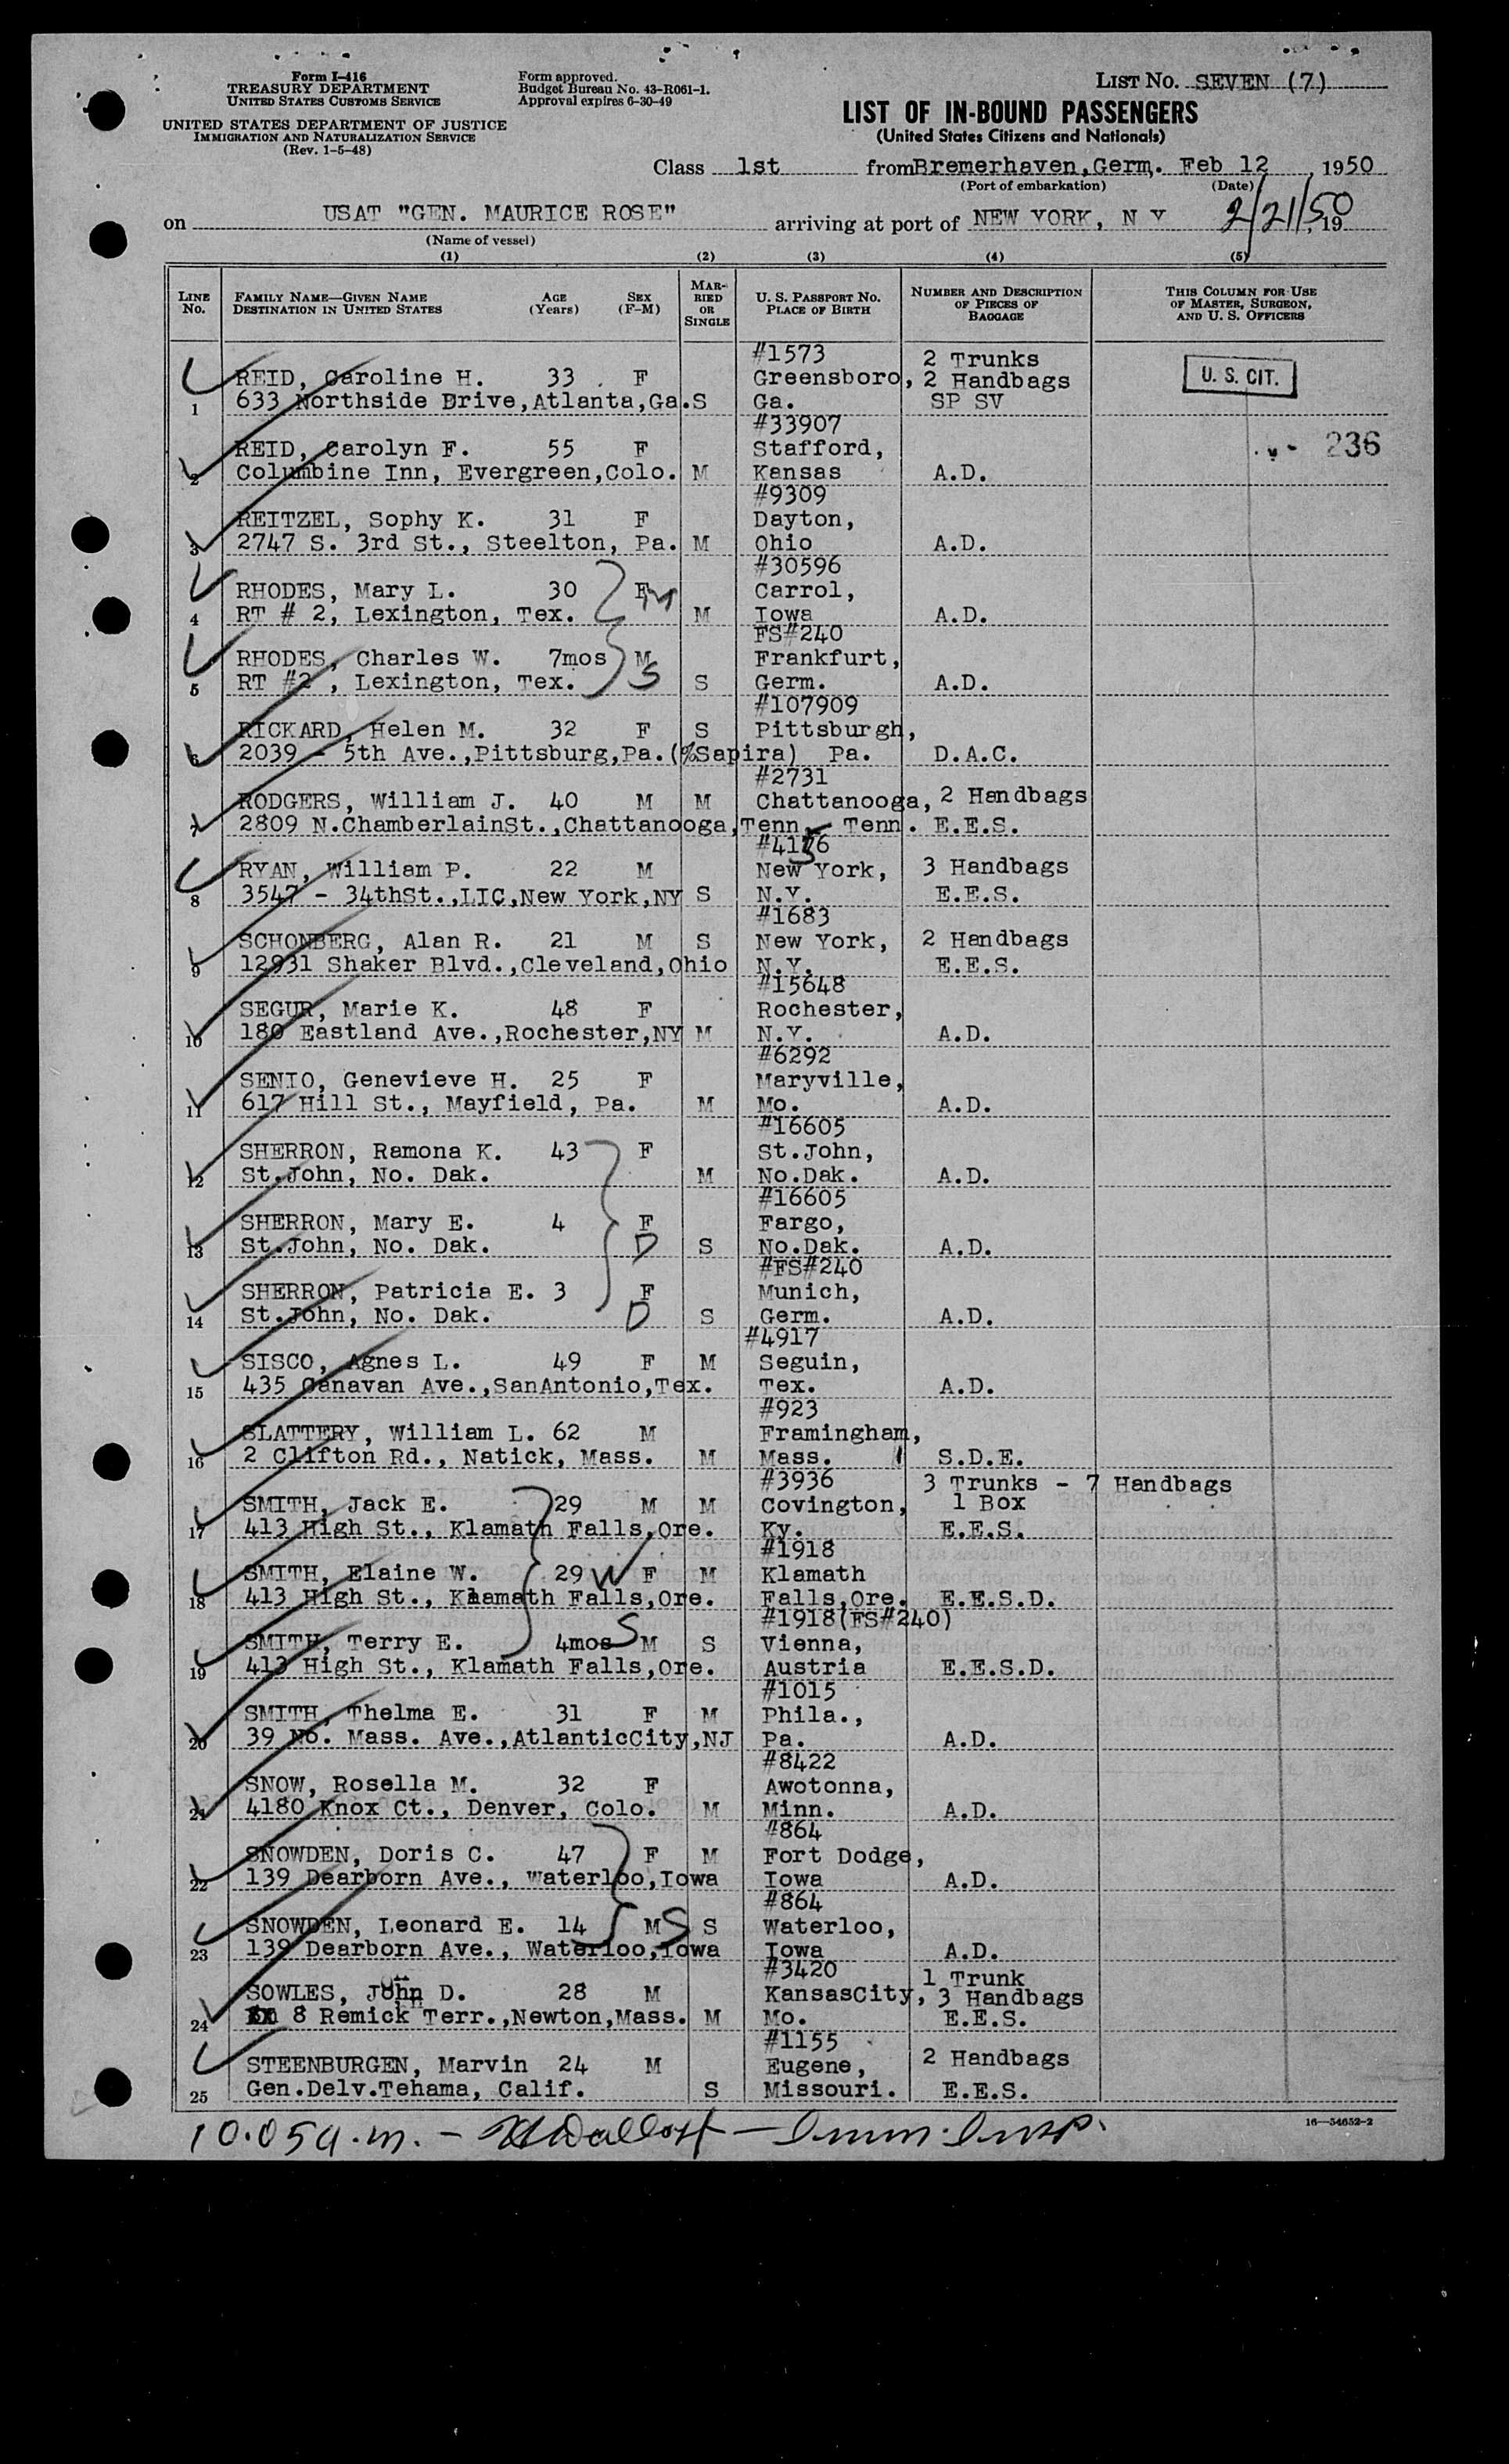 Form I-416
TREASURY DEPARTMENT
UNITED STATES CUSTOMS SERVICE
UNITED STATES DEPARTMENT OF JUSTICE
IMMIGRATION AND NATURALIZATION SERVICE
(Rev. 1-5-48)
Form approved.
Budget Bureau No. 43-R061-1.
Approval expires 6-30-49
LIST NO. SEVEN (7)
LIST OF IN-BOUND PASSENGERS
(United States Citizens and Nationals)
Class 1st from Bremerhaven,Germ. Feb 12, 1950
(Port of embarkation) (Date)
on USAT "GEN. MAURICE ROSE" arriving at port of NEW YORK, N Y 2/21/50, 19
(Name of vessel)
(1) (2) (3) (4) (5)
LINE NO. FAMILY NAME—GIVEN NAME DESTINATION IN UNITED STATES AGE (Years) SEX (F-M) MARRIED OR SINGLE U. S. PASSPORT NO. PLACE OF BIRTH NUMBER AND DESCRIPTION OF PIECES OF BAGGAGE THIS COLUMN FOR USE OF MASTER, SURGEON, AND U. S. OFFICERS
#1573 2 Trunks
REID, Caroline H. 33 F Greensboro, 2 Handbags U. S. CIT.
1 633 Northside Drive,Atlanta,Ga. S Ga. SP SV
#33907
REID, Carolyn F. 55 F Stafford, 236
2 Columbine Inn, Evergreen,Colo. M Kansas A.D.
#9309
REITZEL, Sophy K. 31 F Dayton,
3 2747 S. 3rd St., Steelton, Pa. M Ohio A.D.
#30596
RHODES, Mary L. 30 F M Carrol,
4 RT # 2, Lexington, Tex. M Iowa A.D.
FS#240
RHODES, Charles W. 7mos M S Frankfurt,
5 RT #2 , Lexington, Tex. S Germ. A.D.
#107909
RICKARD, Helen M. 32 F S Pittsburgh,
6 2039 - 5th Ave.,Pittsburg,Pa.(%Sapira) Pa. D.A.C.
#2731
RODGERS, William J. 40 M M Chattanooga, 2 Handbags
7 2809 N.ChamberlainSt.,Chattanooga,Tenn. Tenn. E.E.S.
RYAN, William P. 22 M New York, 3 Handbags
8 3547 - 34thSt.,LIC,New York,NY S N.Y. E.E.S.
#1683
SCHONBERG, Alan R. 21 M S New York, 2 Handbags
9 12931 Shaker Blvd.,Cleveland,Ohio N.Y. E.E.S.
#15648
SEGUR, Marie K. 48 F Rochester,
10 180 Eastland Ave.,Rochester,NY M N.Y. A.D.
#6292
SENIO, Genevieve H. 25 F Maryville,
11 617 Hill St., Mayfield, Pa. M Mo. A.D.
#16605
SHERRON, Ramona K. 43 F St.John,
12 St.John, No. Dak. M No.Dak. A.D.
#16605
SHERRON, Mary E. 4 F Fargo,
13 St.John, No. Dak. D S No.Dak. A.D.
#FS#240
SHERRON, Patricia E. 3 F Munich,
14 St.John, No. Dak. D S Germ. A.D.
#4917
SISCO, Agnes L. 49 F M Seguin,
15 435 Canavan Ave.,SanAntonio,Tex. Tex. A.D.
#923
SLATTERY, William L. 62 M Framingham,
16 2 Clifton Rd., Natick, Mass. M Mass. S.D.E.
#3936 3 Trunks - 7 Handbags
SMITH, Jack E. 29 M M Covington, 1 Box
17 413 High St., Klamath Falls,Ore. Ky. E.E.S.
#1918
SMITH, Elaine W. 29 W F M Klamath
18 413 High St., Klamath Falls,Ore. Falls,Ore. E.E.S.D.
#1918(FS#240)
SMITH, Terry E. 4mos S M S Vienna,
19 413 High St., Klamath Falls,Ore. Austria E.E.S.D.
#1015
SMITH, Thelma E. 31 F M Phila.,
20 39 No. Mass. Ave.,AtlanticCity,NJ Pa. A.D.
#8422
SNOW, Rosella M. 32 F Awotonna,
21 4180 Knox Ct., Denver, Colo. M Minn. A.D.
#864
SNOWDEN, Doris C. 47 F M Fort Dodge,
22 139 Dearborn Ave., Waterloo,Iowa Iowa A.D.
#864
SNOWDEN, Leonard E. 14 M S S Waterloo,
23 139 Dearborn Ave., Waterloo,Iowa Iowa A.D.
#3420 1 Trunk
SOWLES, John D. 28 M KansasCity, 3 Handbags
24 8 Remick Terr.,Newton,Mass. M Mo. E.E.S.
#1155
STEENBURGEN, Marvin 24 M Eugene, 2 Handbags
25 Gen.Delv.Tehama, Calif. S Missouri. E.E.S.
16—54652-2
10.05a.m. - - Imm. Insp.